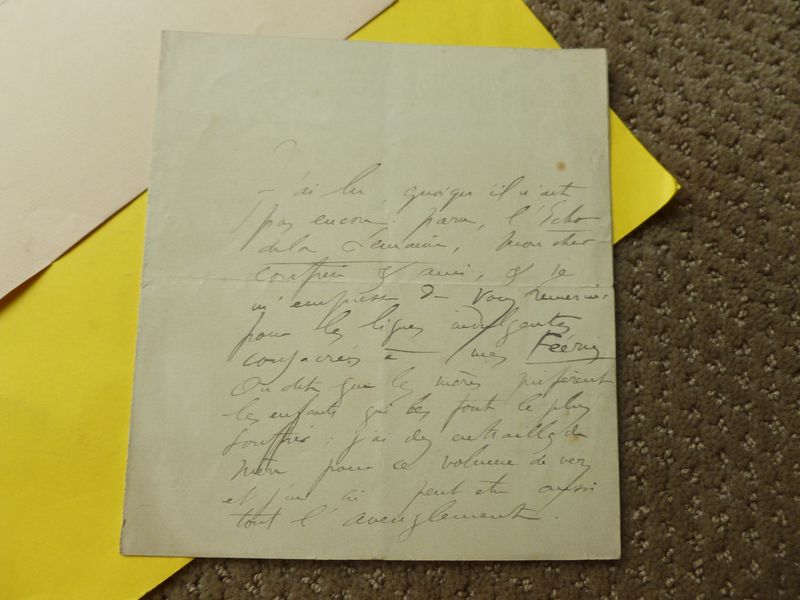 J'ai lu, quoiqu'il n'ait
pas encore paru, l'Echo
de la Semaine, mon cher
confrère & ami, & je
m'empresse de vous remercier
pour les lignes indulgentes
consacrées à mes Féeries
On dit que les mères préfèrent
les enfants qui les font le plus
souffrir : j'ai des entrailles de
mère pour ce volume de vers
et j'en ai peut être aussi
tout l'aveuglement.